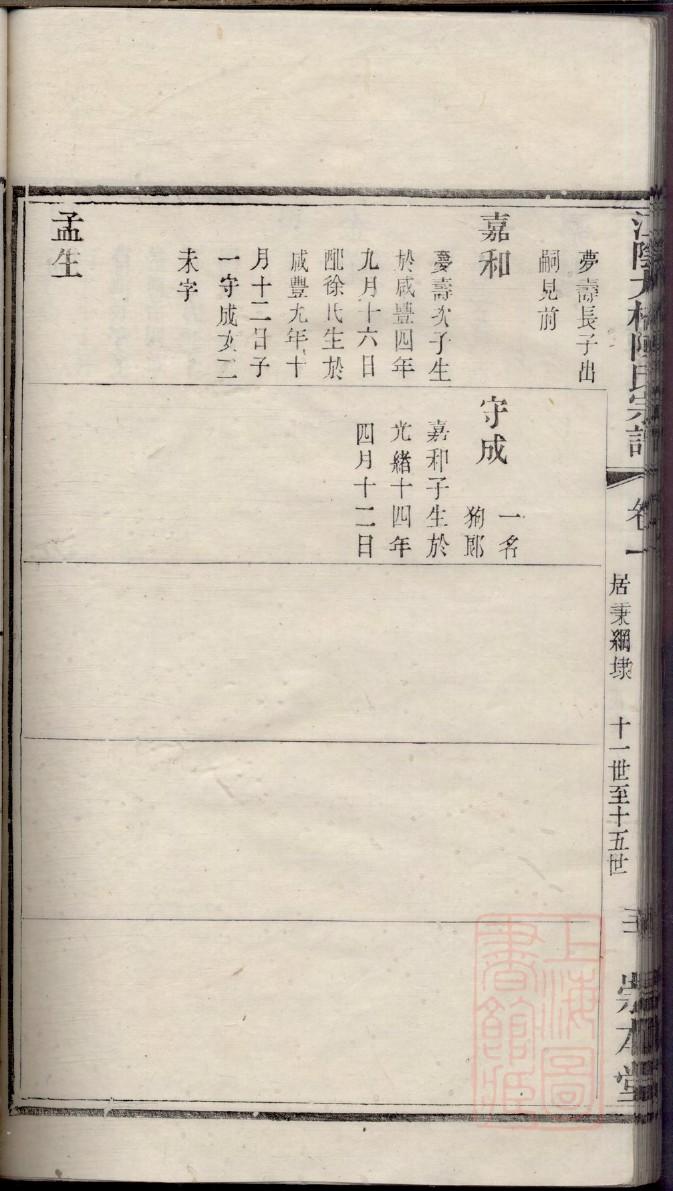 江陰大橋陳氏宗譜
卷一
居秉綱埭
十一世至十五世
崇本堂
夢壽長子出
嗣見前
嘉和
夢壽次子生
於咸豐四年
九月十六日
配徐氏生於
咸豐九年十
月十二日子
一守成女二
未字
孟生
守成
一名
狗郎
嘉和子生於
光緒十四年
四月十二日
上海圖
書館藏